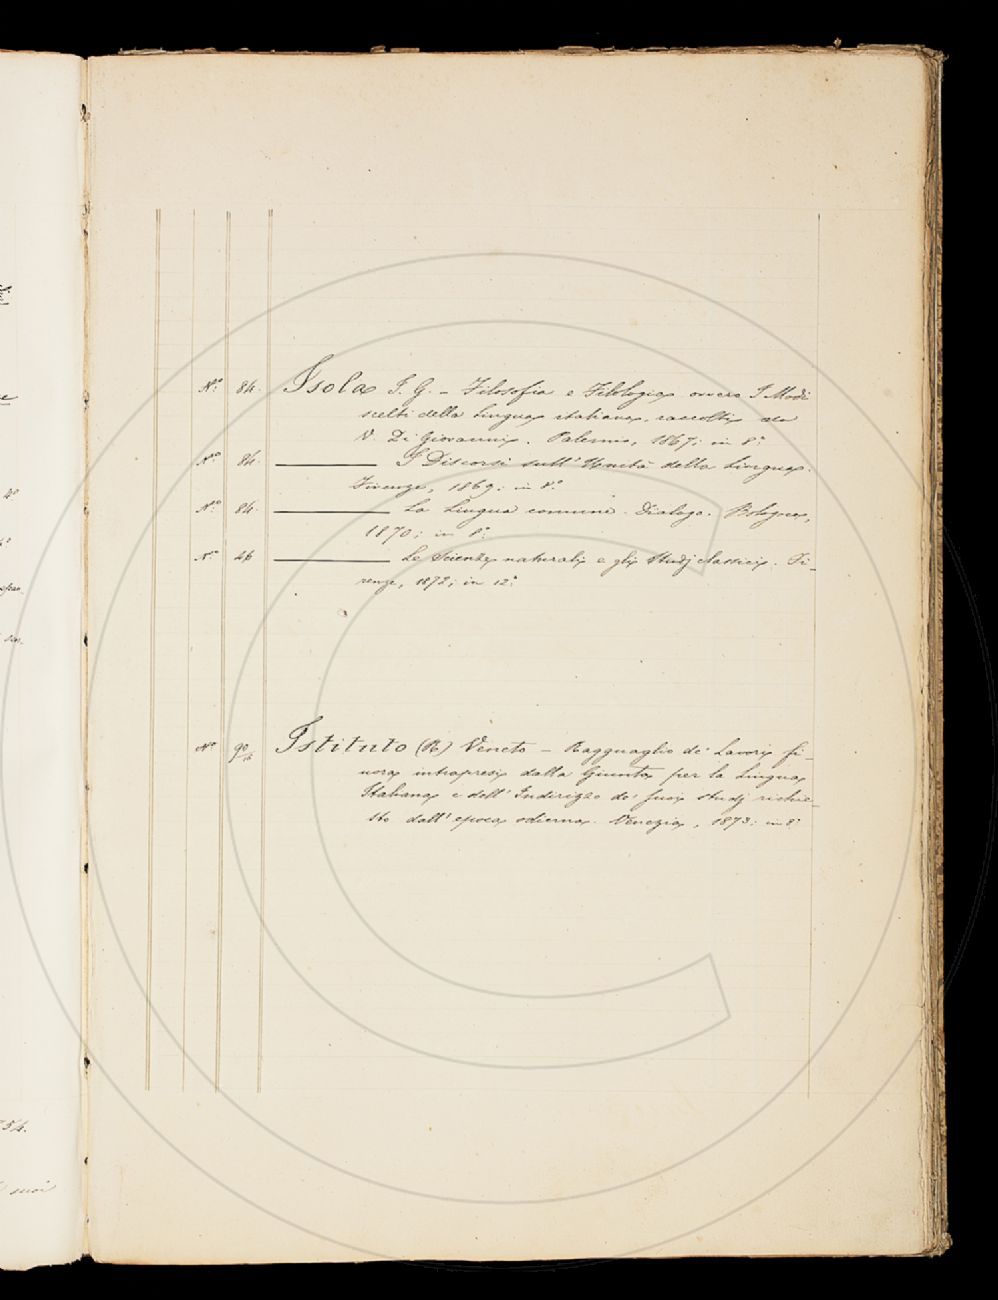 Nº 84. Isola I. G. – Filosofia e Filologia ovvero I Modi
scelti della Lingua italiana, raccolti da
V. Di Giovanni. Palermo, 1867; in 8º
Nº 84. ——— I Discorsi sull' Unità della Lingua.
Firenze, 1869: in 8º
Nº 84. ——— La Lingua comune. Dialogo. Bologna,
1870; in 8º
Nº 46 ——— Le Scienze naturali e gli Studj classici. Fi-
renze, 1872; in 12º
Nº 90/16 Istituto (R.) Veneto – Ragguaglio de' Lavori fi-
nora intrapresi dalla Giunta per la Lingua
Italiana e dell' Indirizzo de' suoi studj richie-
sto dall' epoca odierna. Venezia, 1873: in 8º
54.
suoi